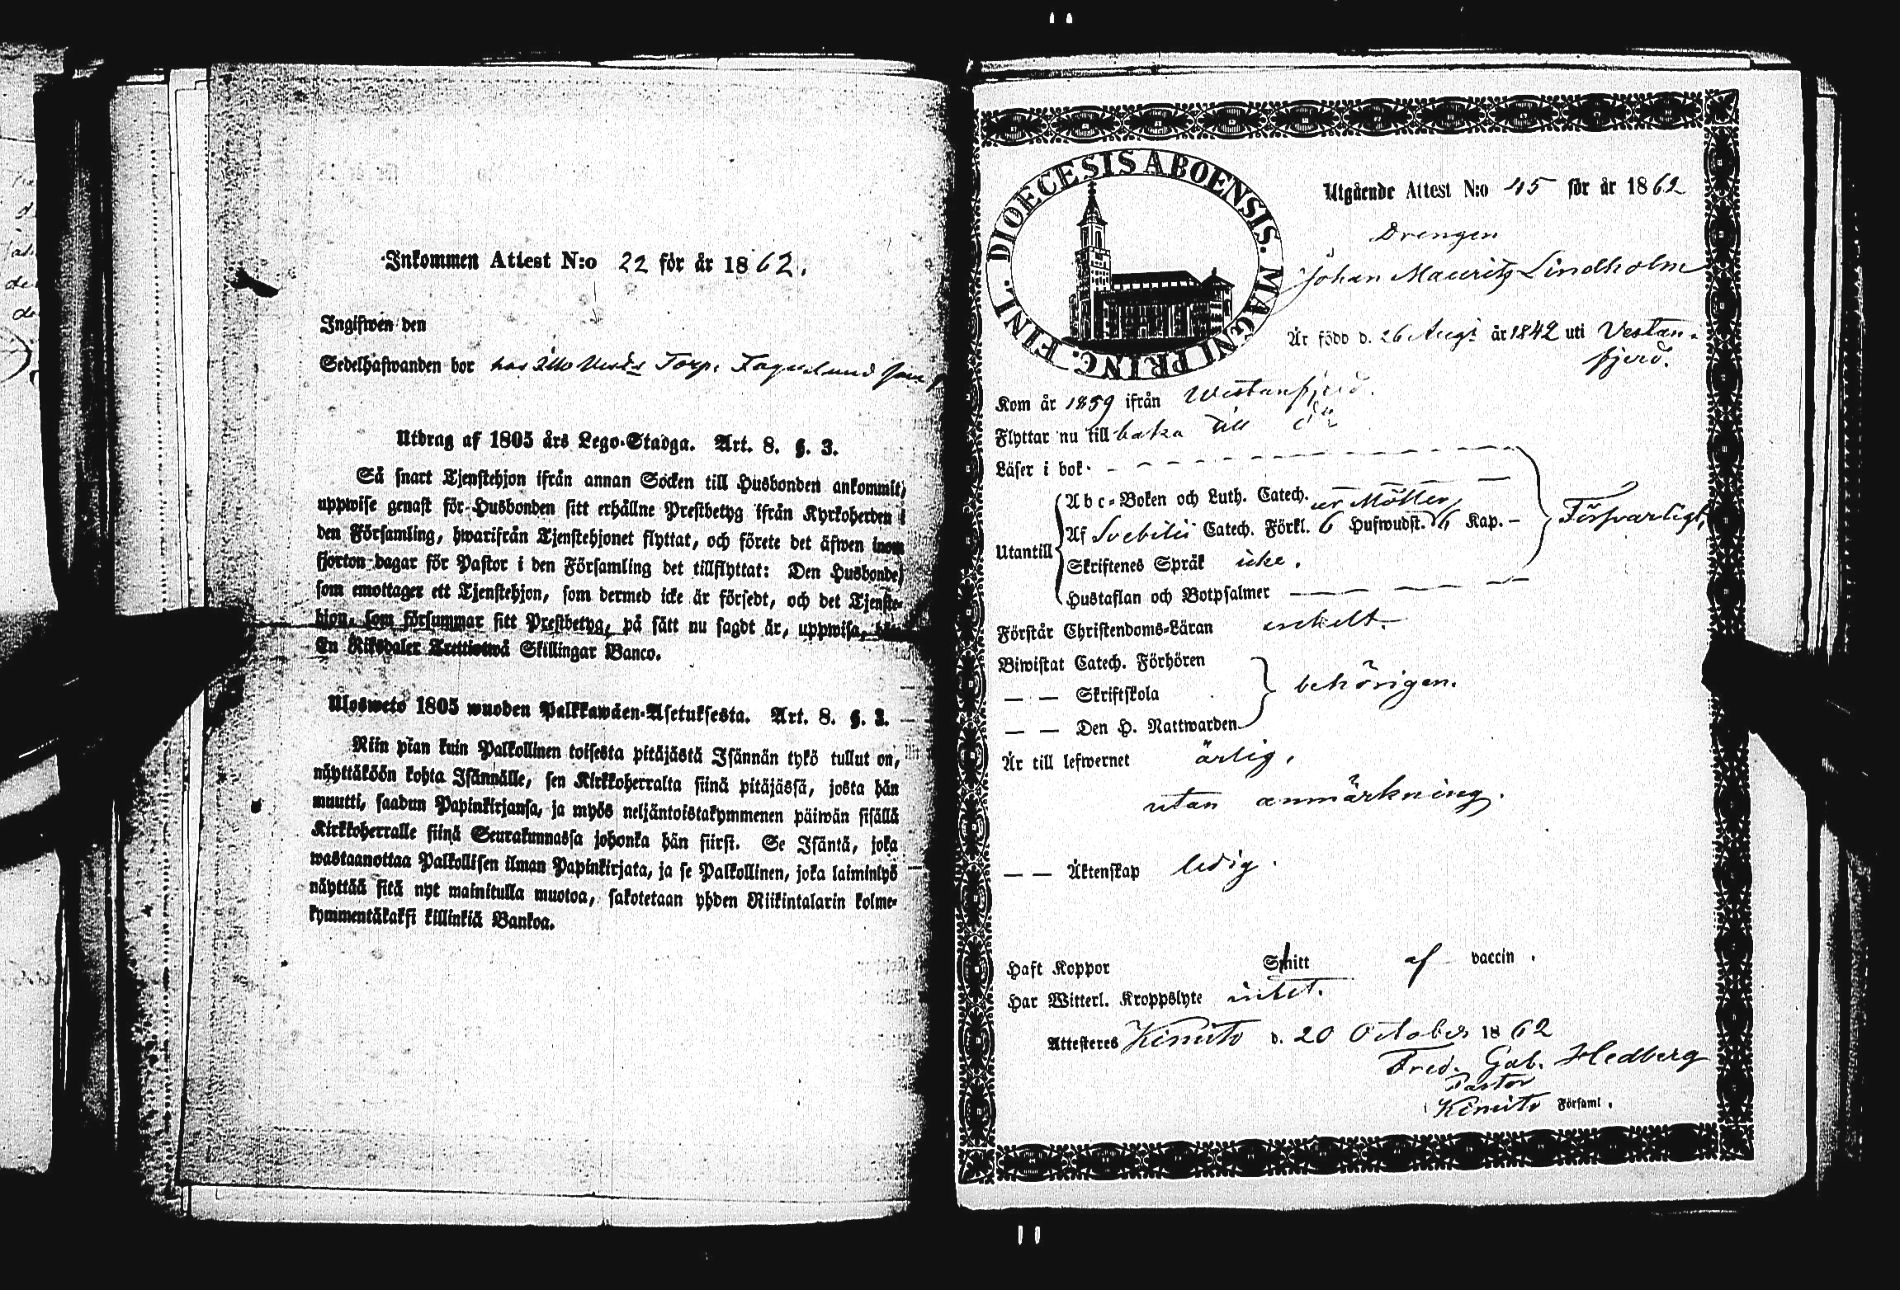 Inkommen Attest N:o 22 för år 1862.
Ingifwen den
Sedelhafwanden bor hos Torp. Fagerlund
Utdrag af 1805 års Lego-Stadga. Art. 8. §. 3.
Så snart Tjenstehjon ifrån annan Socken till Husbonden ankommit,
uppwise genast för Husbonden sitt erhållne Prestbetyg ifrån Kyrkoherden i
den Församling, hwarifrån Tjenstehjonet flyttat, och förete det äfwen inom
fjorton dagar för Pastor i den Församling det tillflyttat: Den Husbonde,
som emottager ett Tjenstehjon, som dermed icke är försedt, och det Tjenste-
hjon, som försummar sitt Prestbetyg, på sätt nu sagdt är, uppwisa,
En Riksdaler Trettiotwå Skillingar Banco.
Ulosweto 1805 wuoden Palkkawäen-Asetuksesta. Art. 8. §. 3.
Niin pian kuin Palkollinen toisesta pitäjästä Isännän tykö tullut on,
näyttäköön kohta Isännälle, sen Kirkkoherralta siinä pitäjässä, josta hän
muutti, saadun Papinkirjansa, ja myös neljäntoistakymmenen päiwän sisällä
Kirkkoherralle siinä Seurakunnassa johonka hän siirst. Se Isäntä, joka
wastaanottaa Palkollisen ilman Papinkirjata, ja se Palkollinen, joka laiminlyö
näyttää sitä nyt mainitulla muotoa, sakotetaan yhden Riikintalarin kolme-
kymmentäkaksi killinkiä Bankoa.
DIOECESIS ABOENSIS. MAGNI PRINC. FINL.
Utgående Attest N:o 45 för år 1862
Drengen
Johan Mauritz Lindholm
Är född d. 26 Aug. år 1842 uti Vestan-
fjerd.
Kom år 1859 ifrån Westanfjerd.
Flyttar nu till baka till do
Läser i bok
Abc-Boken och Luth. Catech.
Utantill Af Svebilii Catech. Förkl. 6 Hufwudst. Kap. Försvarligt,
Skriftenes Språk icke.
Hustaflan och Botpsalmer
Förstår Christendoms-Läran enkelt.
Biwistat Catech. Förhören
— — Skriftskola behörigen.
— — Den H. Nattwarden
Är till lefwernet ärlig,
utan anmärkning.
— — Äktenskap ledig.
Haft Koppor Smitt af vaccin.
Har Witterl. Kroppslyte intet.
Attesteres Kimito d. 20 October 1862
Fred. Gab. Hedberg
Pastor
Kimito Församl.